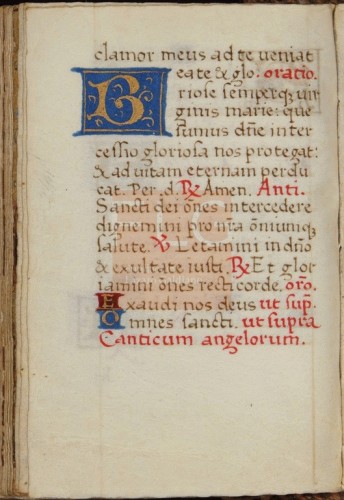 clamor meus ad te veniat
B eate & glo. oratio.
riose semperq; vir
ginis marie: que
sumus dñe inter
cessio gloriosa nos protegat:
& ad vitam eternam perdu
cat. Per. d. ℞ Amen. Anti.
Sancti dei oẽs intercedere
dignemini pro nr̃a õniumq;
salute. ℣ Letamini in dño
& exultate iusti. ℞ Et glor
iamini oẽs recti corde. oro.
Exaudi nos deus ut sup̃.
Omnes sancti. ut supra
Canticum angelorum.